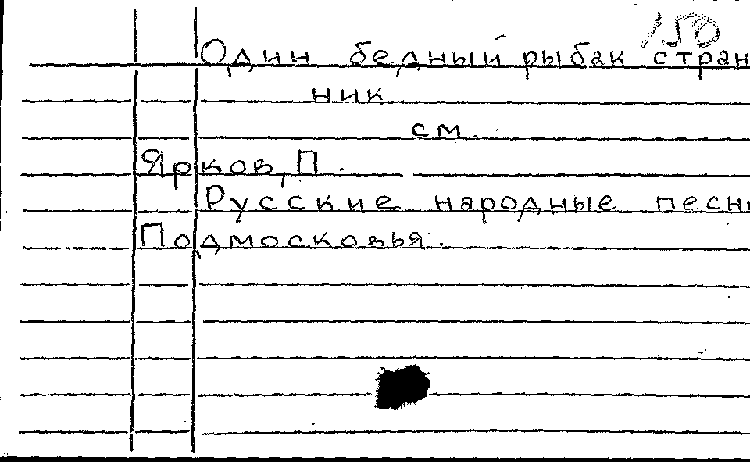 150
Один бедный рыбак стран
ник
см.
Ярков, П.
Русские народные песни
Подмосковья.